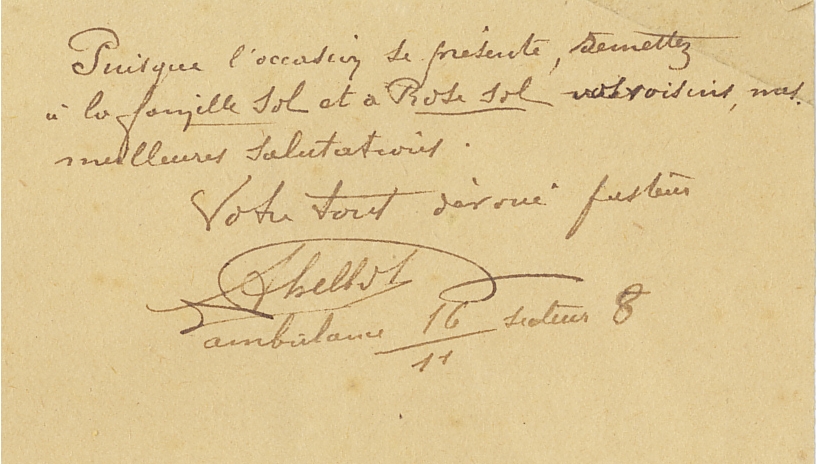 Puisque l'occasion se présente, remettez
à la famille Sol et à Rose Sol vos voisins, mes
meilleures salutations.
Votre tout dévoué
ambulance 16/11 secteur 8